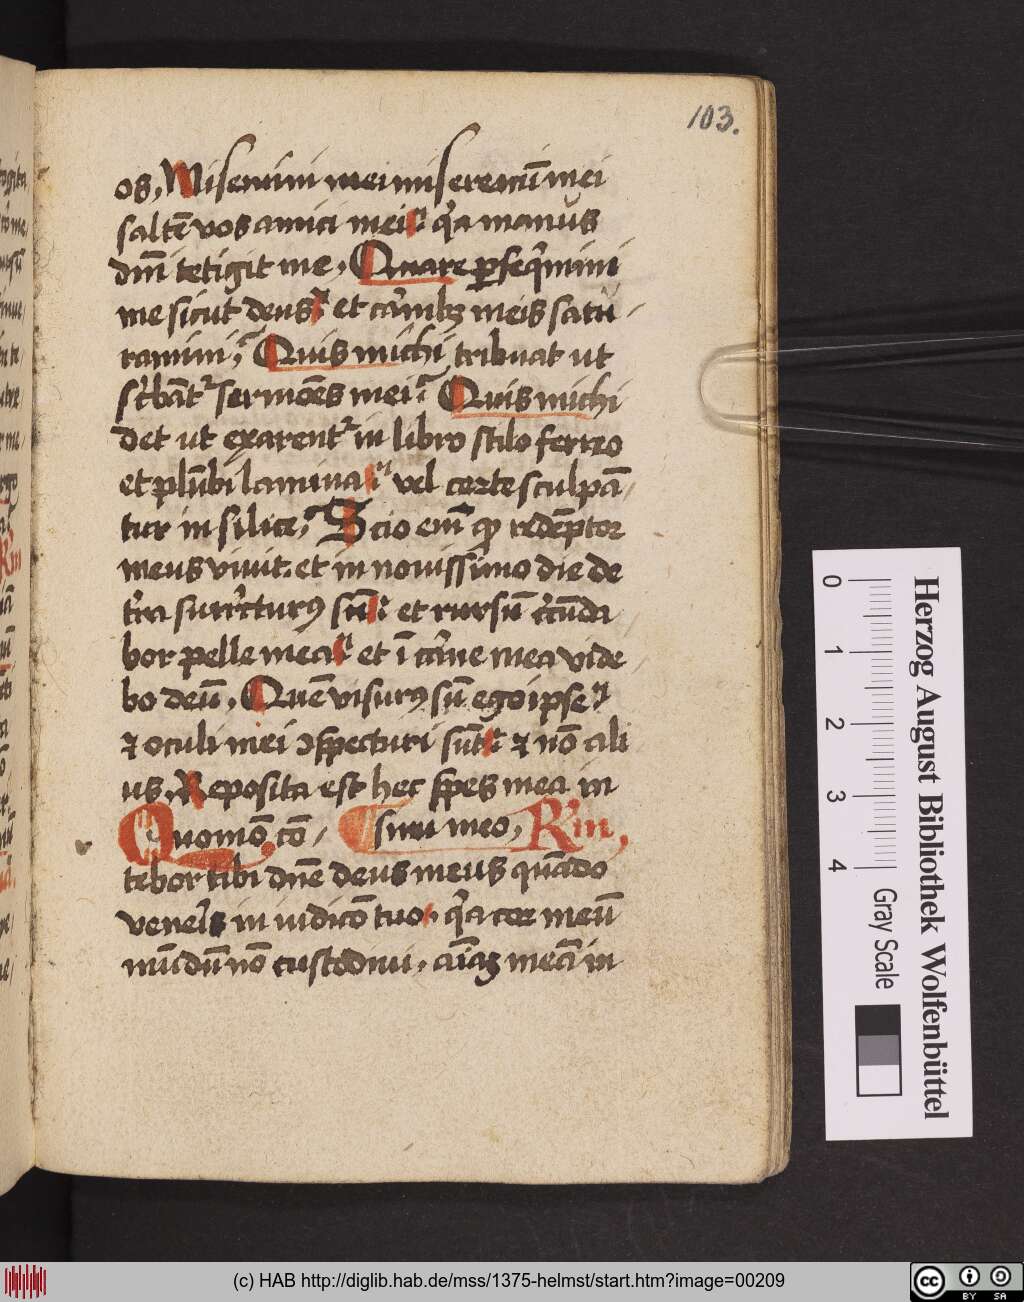 103.
os, Miseremini mei miseremĩ mei
saltẽ vos amici mei qͥa manus
dnĩ tetigit me, Quare ꝑseqͥmini
me sicut deus et carͥnibꝫ meis satu
ramini, Quis michi tribuat ut
scͥbãtᷣ sermões mei Quis michi
det ut exarentᷣ in libro stilo ferreo
et plũbi lamina vel certe sculpã
tur in silice, Scio em̃ ꝙ redẽptor
meus viuit. et in nouissimo die de
tͥra surrͥcturꝰ sũ et rursũ cͥcũda
bor pelle mea et ĩ carͥne mea vide
bo deũ, Quẽ visurꝰ sũ ego ipse
⁊ oculi mei ꝯspecturi sũt ⁊ nõ ali
us, Reposita est hec spes mea in
Quomõ cõ sinu meo, Rm,
tebor tibi dñe deus meus quãdo
veneris in iudicõ tuo. qͥa cor meũ
mũdũ nõ custodiui. aĩaꝫ meã in
Herzog August Bibliothek Wolfenbüttel
0 1 2 3 4
Gray Scale
(c) HAB http://diglib.hab.de/mss/1375-helmst/start.htm?image=00209
cc BY SA